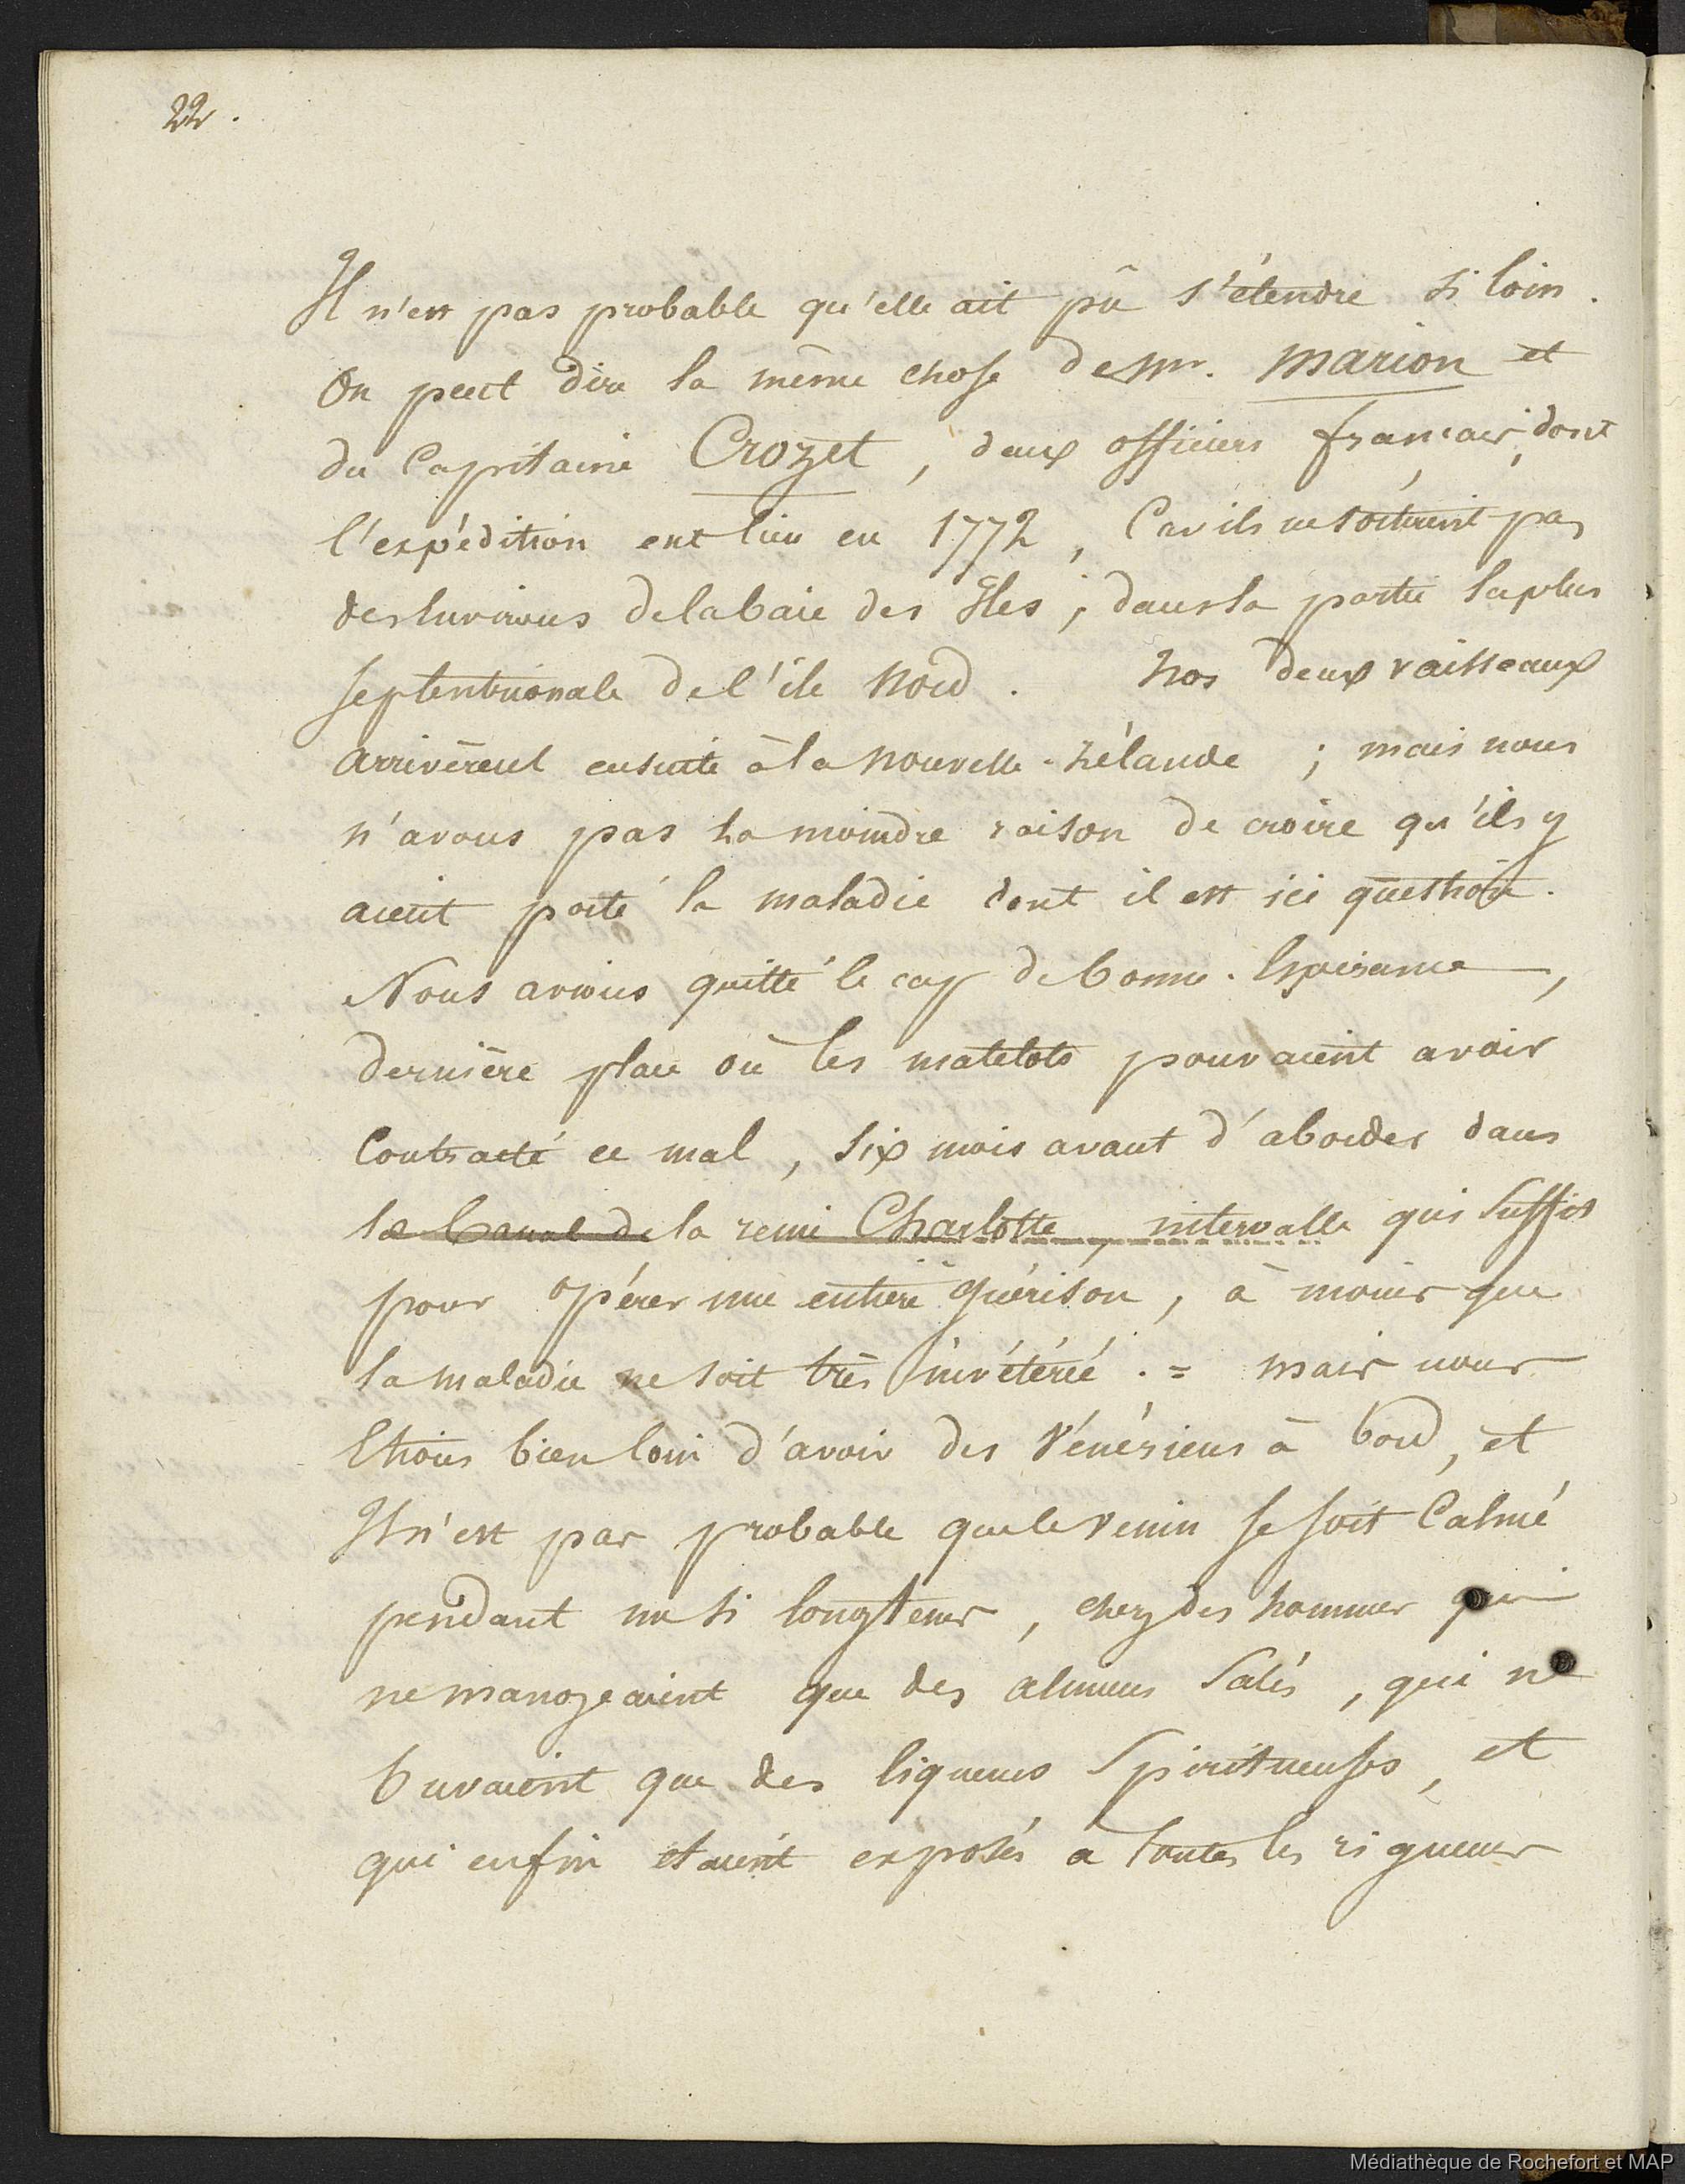 22.
Il n'est pas probable qu'elle ait pû s'étendre si loin.
On peut dire la même chose de Mr. Marion et
du Capitaine Crozet, deux officiers français, dont
l'expédition eut lieu en 1772, Car ils ne sortirent pas
des environs de la baie des Îles, dans la partie la plus
septentrionale de l'île Nord. Nos deux vaisseaux
arrivèrent ensuite à la Nouvelle-Zélande ; mais nous
n'avons pas la moindre raison de croire qu'ils y
aient porté la maladie dont il est ici question.
Nous avions quitté le cap de bonne-Espérance,
dernière place où les matelots pouvaient avoir
Contracté ce mal, six mois avant d'aborder dans
le Canal de la reine Charlotte, intervalle qui suffit
pour opérer une entière guérison, à moins que
la maladie ne soit très invétérée. = mais nous
Etions bien loin d'avoir des Vénériens à bord, et
Il n'est pas probable que le venin se soit Calmé
pendant un si longtems, chez des hommes qui
ne mangeaient que des alimens salés, qui ne
buvaient que des liqueurs spiritueuses, et
qui enfin etaient exposés a toutes les rigueurs
Médiathèque de Rochefort et MAP